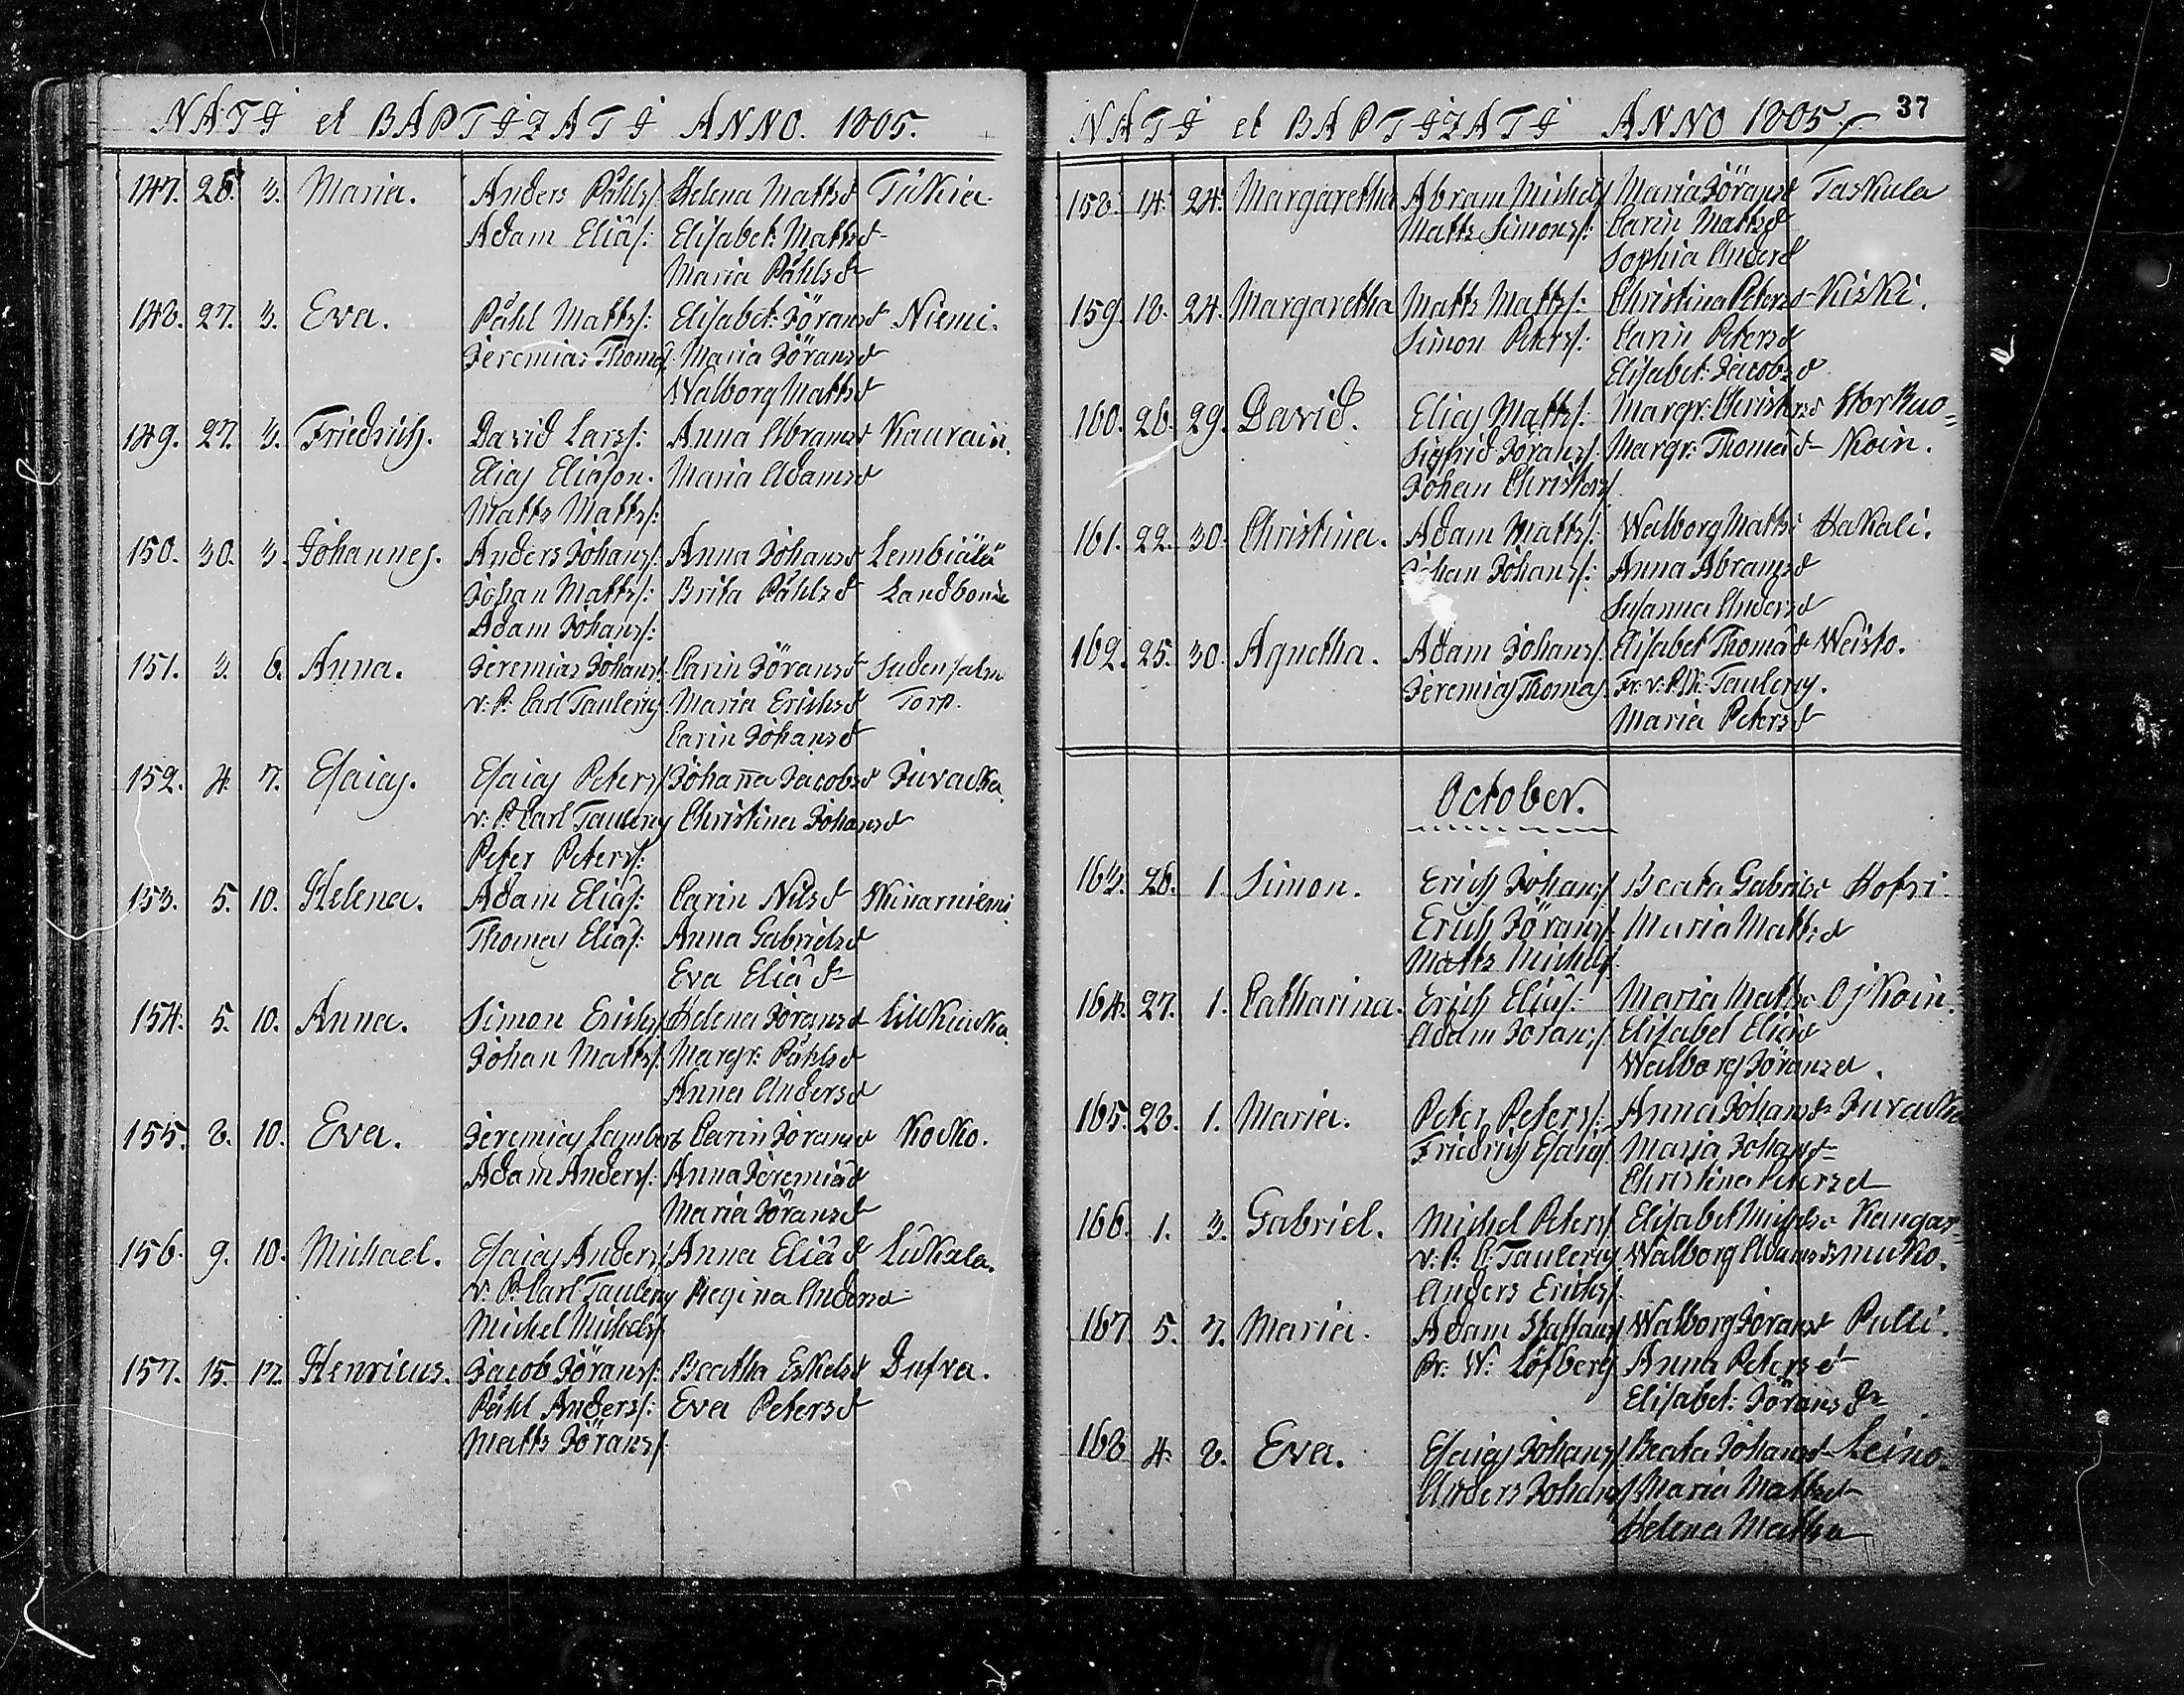 NATI et BAPTIZATI ANNO. 1805.
147. 26. 3. Maria. Anders Påhls/: Helena Mattsd Tükia.
Adam Eliæ/: Elisabet: Mattsd
Maria Påhlsd
148. 27. 3. Eva. Påhl Matts/: Elisabet: Jöransd Niemi.
Jeremias Thomæ/. Maria Jöransd
Walborg Mattsd
149. 27. 3. Friedrich. David Lars/: Anna Abramsd Kaurain.
Elias Eliæson. Maria Adamsd
Matts Matts/:
150. 30. 3. Johannes. Anders Johans/: Anna Johansd Lembiälä
Johan Matts/: Brita Påhlsd Landbonde
Adam Johans/:
151. 3. 6. Anna. Jeremias Johans/. Carin Jöransd
v: P: Carl Taulerus Maria Erichsd Torp.
Carin Johansd
152. 4. 7. Esaias. Esaias Peters/ Johana Jacobsd Juvaska.
v: P: Carl Taulerus Christina Johansd
Peter Peters/:
153. 5. 10. Helena. Adam Eliæ/: Carin Nilsd
Thomas Eliæ/: Anna Gabrielsd
Eva Eliæ d
154. 5. 10. Anna. Simon Erichs/ Helena Jöransd
Johan Matts/. Margr: Påhlsd
Anna Andersd
155. 8. 10. Eva. Jeremias Lamberts Carin Jöransd Kosko.
Adam Anders/: Anna Jeremiæd
Maria Jöransd
156. 9. 10. Michael. Esaias Anders/ Anna Eliæ d Lukala.
v: P: Carl Taulerus Regina Andersd
Michel Michels/
157. 15. 17. Henricus. Jacob Jörans/: Beatha Eskelsd Dufva.
Påhl Anders/: Eva Petersd
Matts Jörans/
NATI et BAPTIZATI ANNO 1805. 37
158. 14. 24. Margaretha Abram Michels/ Maria Jöransd Taskula
Matts Simons/: Carin Mattsd
Sophia Andersd
159. 18. 24. Margaretha Matts Matts/: Christina Petersd Kiski.
Simon Peters/: Carin Petersd
Elisabet: Jacobsd
160. 26. 29. David. Elias Matts/: Margr: Christersd StorRuo=
Sigfrid Jörans/: Margr: Thomæ d koin.
Johan Christers/
161. 22. 30. Christina. Adam Matts/: Walborg Matts: Hakali.
Johan Johans/: Anna Abramsd
Susanna Andersd
162. 25. 30. Agnetha. Adam Johans/. Elisabet Thomæ d Weisto.
Jeremias Thomæ/. Fr: v: P:K: Taulerus.
Maria Petersd
October.
163. 26. 1. Simon. Erich Johans/ Beata Gabrielsd Hofri
Erich Jörans/. Maria Mattsd
Matts Michels/.
164. 27. 1. Catharina. Erich Eliæ/: Maria Mattsd Ojkoin.
Adam Jörans/. Elisabet Eliæd
Walborg Jöransd.
165. 28. 1. Maria. Peter Peters/: Anna Johansd Juvaska
Friedrich Esaiæ/. Maria Johansd
Christina Petersd
166. 1. 3. Gabriel. Michel Peters/. Elisabet Michelsd Kangas=
v: P: C: Taulerus Walborg Adamsd muko.
Anders Erichs/.
167 5. 7. Maria. Adam Staffans/ Walborg Jöransd Pulli.
Pr: W: Löfberg Anna Petersd
Elisabet: Jöransd
168 4. 8. Eva. Esaias Johans/ Beata Johansd Leino
Anders Johans/ Maria Mattsd
Helena Mattsd